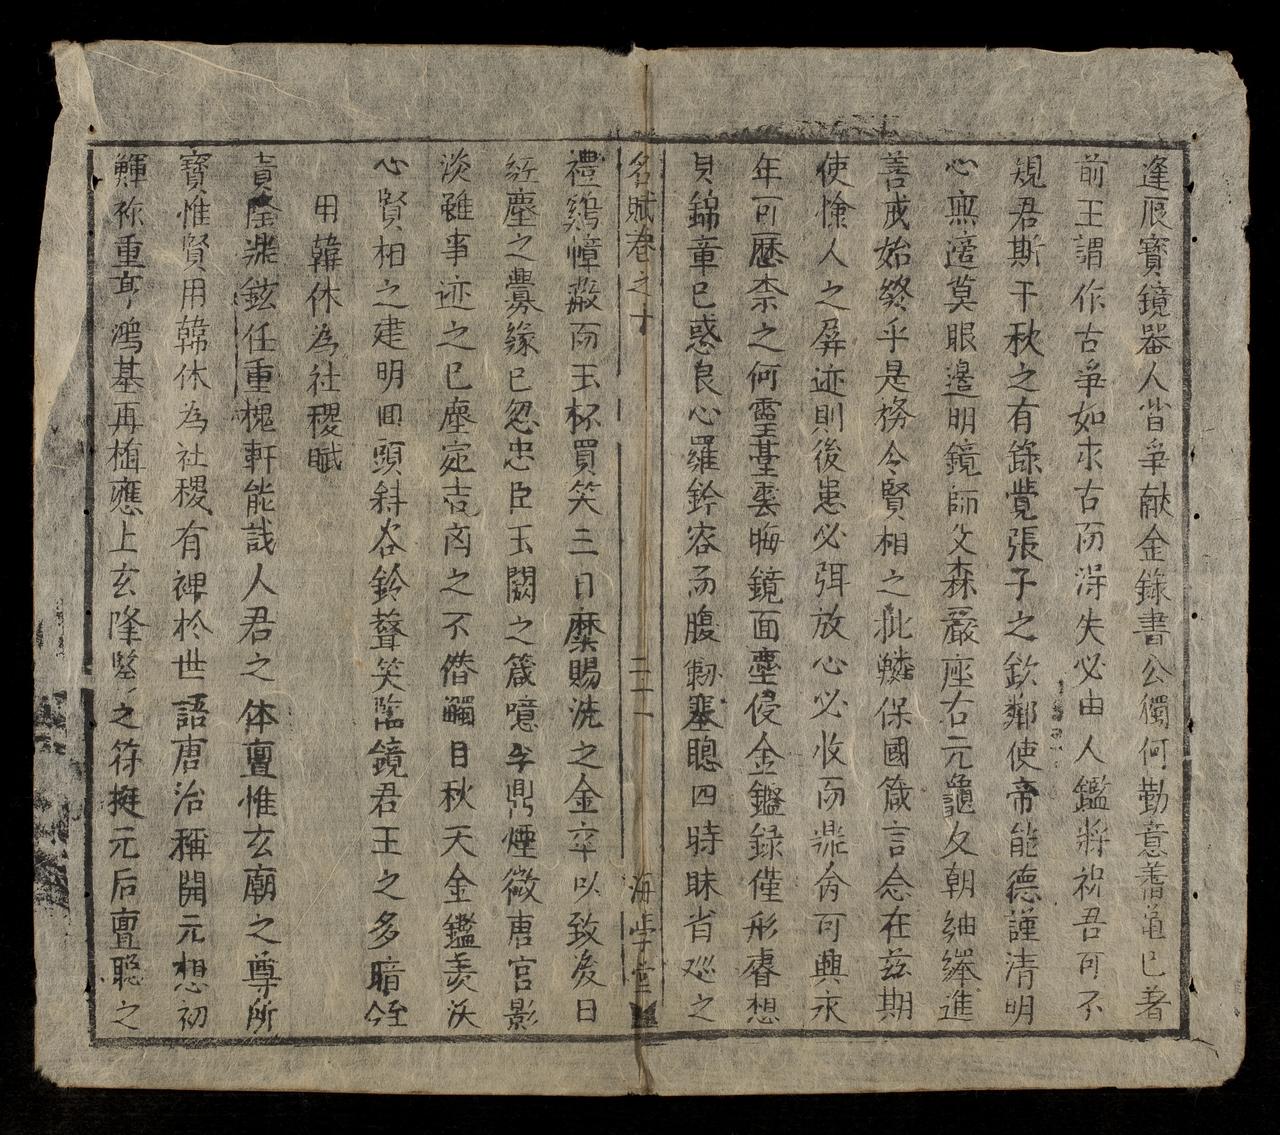 逢辰寳鏡器人皆爭献金錄書公獨何勤意蓍亀已著
前王謂作古爭如求古而淂失必由人鑑將祝吾可不
規君斯千秋之有錄覺張子之欽鄰使帝能德謹清明
心無遠莫眼邊明鏡師父森嚴座右元龜夂朝紬繹進
善戒始終乎是務今賢相之批鱗保國箴言念在兹期
使憸人之屏迹則後患必弭放心必收而鼎侖可興永
年可歷柰之何靈䑓雲晦鏡面塵侵金鑑録僅形睿想
貝錦章已惑良心羅鈴容而腹剱塞聰四時昧省廵之
名賦卷之十 二十一 海學堂
禮鷄幛蔽而玉杯買笑三日縻賜洗之金卒以致逡日
紅塵之釁緣已忽忠臣玉闕之箴噫乎鼎煙微唐官影
淡雖事迹之已塵宛吉凶之不僭觸目秋天金鑑羨沃
心賢相之建明囬頭斜谷鈴聲笑監鏡君王之多暗侄
用韓休為社稷賦
責隆鼎鉉任重槐軒能哉人君之体亶惟玄廟之尊所
寳惟賢用韓休為社稷有裨於世語唐治稱開元想初
鯶祢重亨鴻基再植應上玄隆堅之符挺元后亶聦之